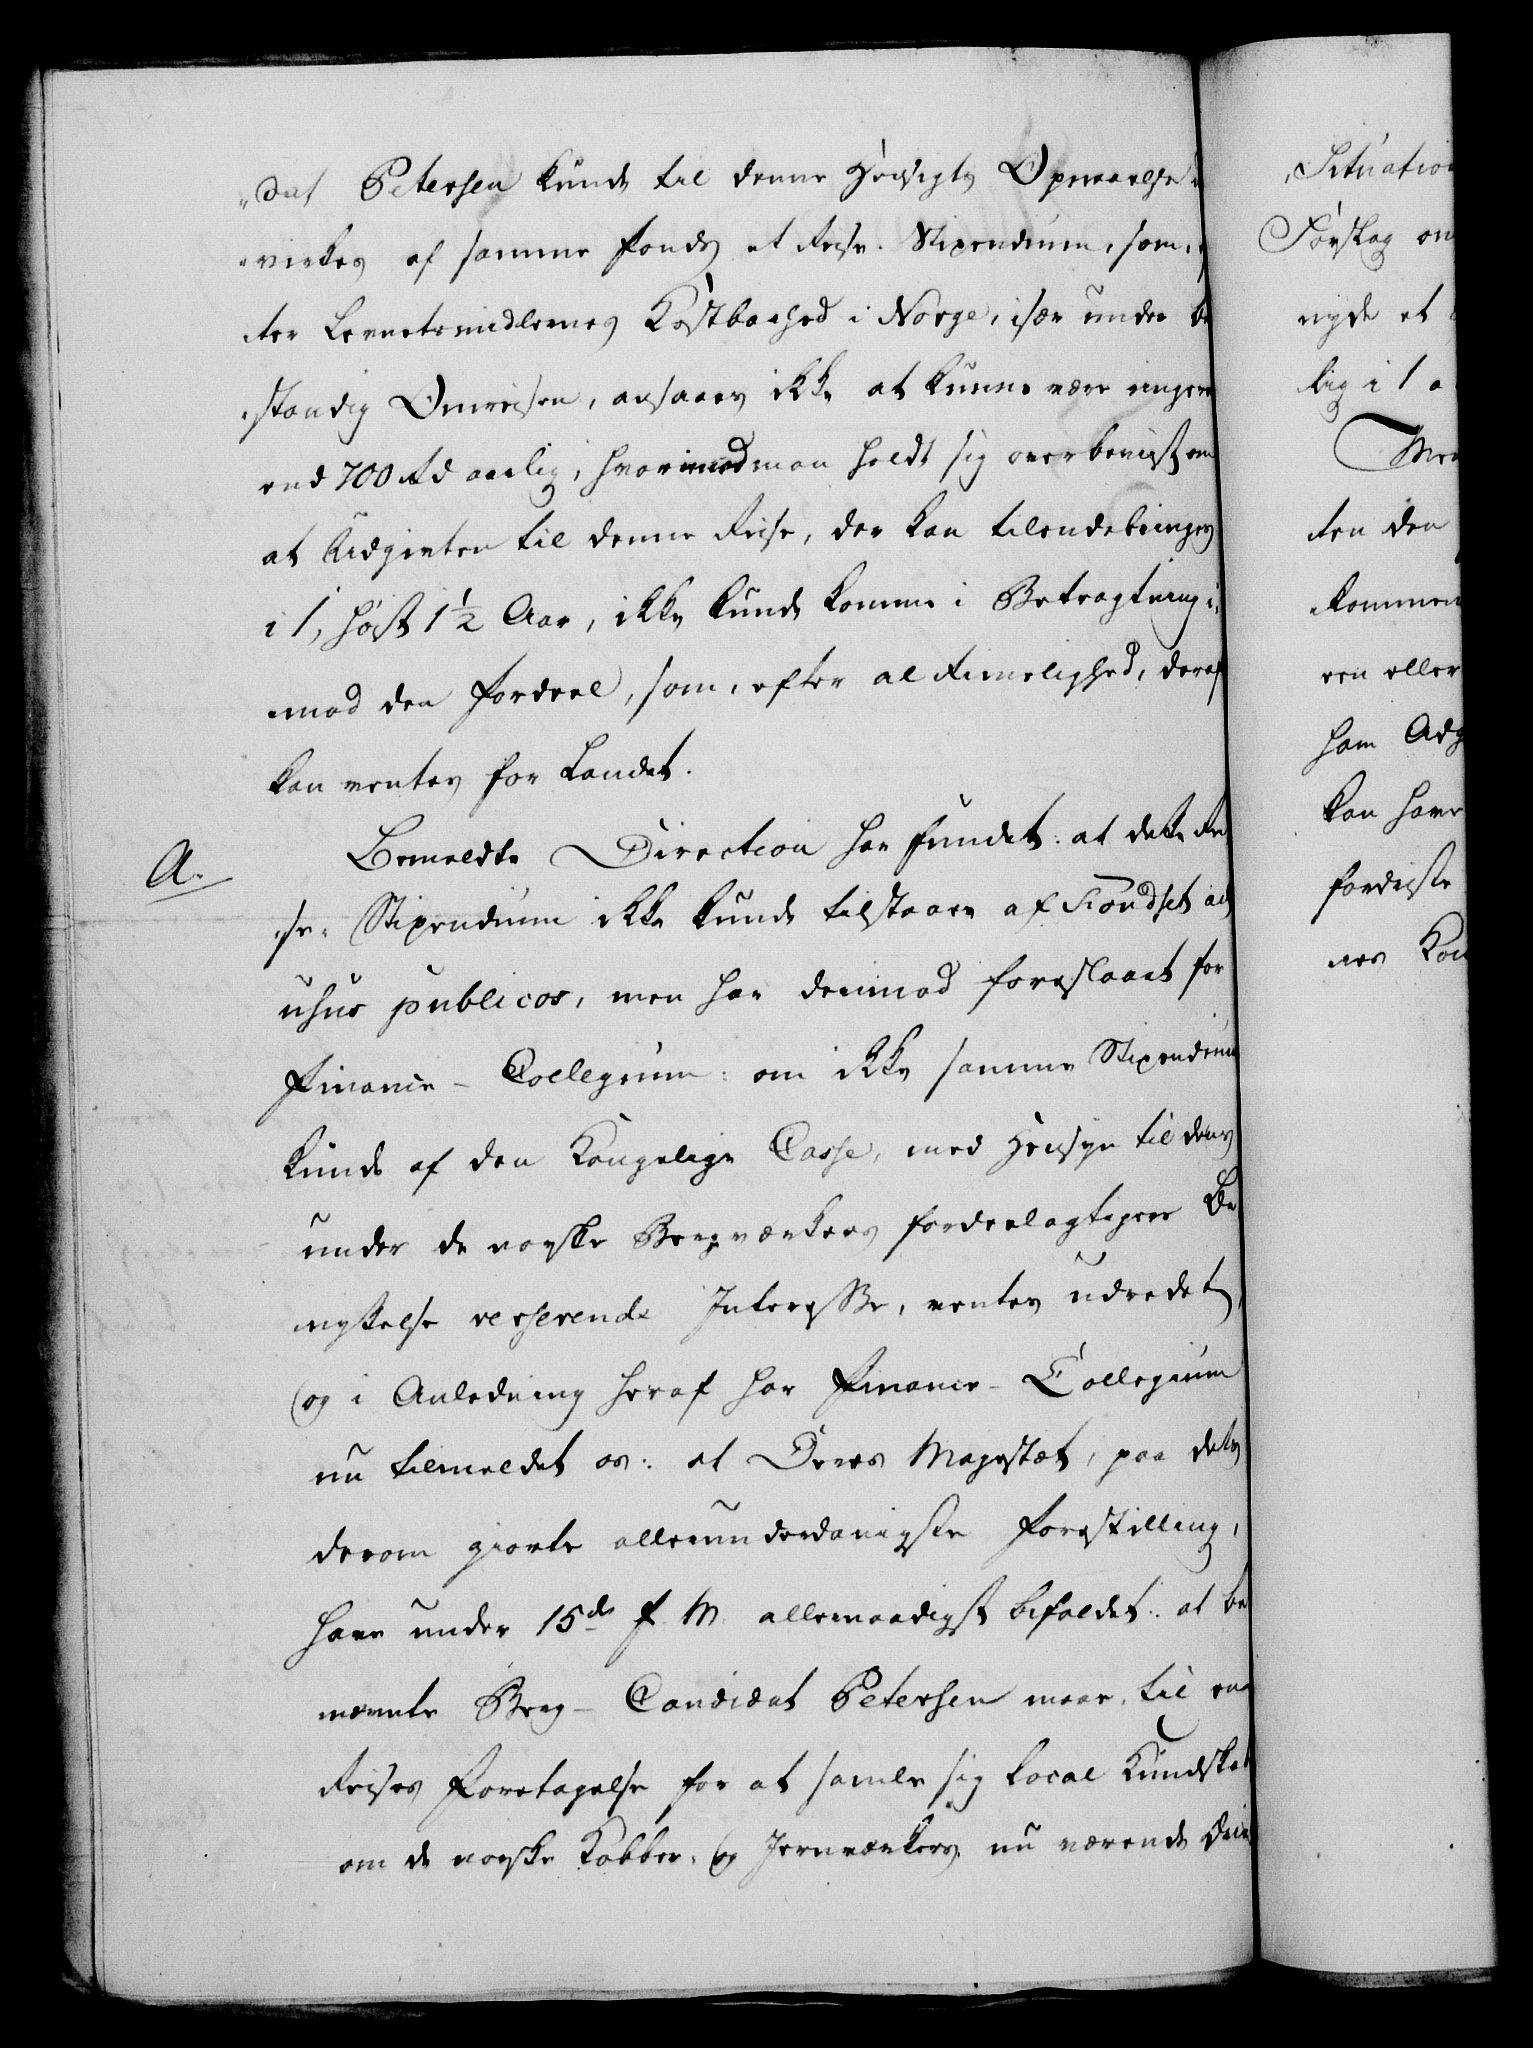 dat Petersen kunde til denne Hensigts Opnaaelse
virkes af samme Fonds et Reise-Stipendium, som,
ter Levnetsmidlernes Kostbarhed i Norge, især under be
standig Omreisen, ansaaes ikke at kunne være ringere
end 700 Rd aarlig, hvorimod man holdt sig overbeviist om
at Udgivten til denne Reise, der kan tilendebringes
i 1, høist 1½ Aar, ikke kunde komme i Betragtning i
mod den Fordeel, som, efter al Rimelighed, deraf
kan ventes for Landet.
A.
Bemeldte Direction har fundet: at dette Rei
se-Stipendium ikke kunde tilstaaes af Fondset ad
usus publicos, men har derimod foreslaaet for
Finance-Collegium: om ikke samme Stipendium
kunde af den Kongelige Casse, med Hensyn til dens
under de norske Bergværkers fordeelagtigere Be
nyttelse verserende Interesse, ventes udredet,
og i Anledning heraf har Finance-Collegium
nu tilmeldet os: at Deres Majestæt, paa dets
derom giorte allerunderdanigste Forestilling,
have under 15de f. M. allernaadigst befaldet: at be
nævnte Berg-Candidat Petersen maae, til en
Reises Foretagelse for at samle sig Local Kundskab
om de norske Kobber- og Jernværkers nu værende Drivt
Situation
Forslag om
nyde et
lig i 1 a
ten den
kommen
een eller
ham Adg
kan have
fordiste
nes